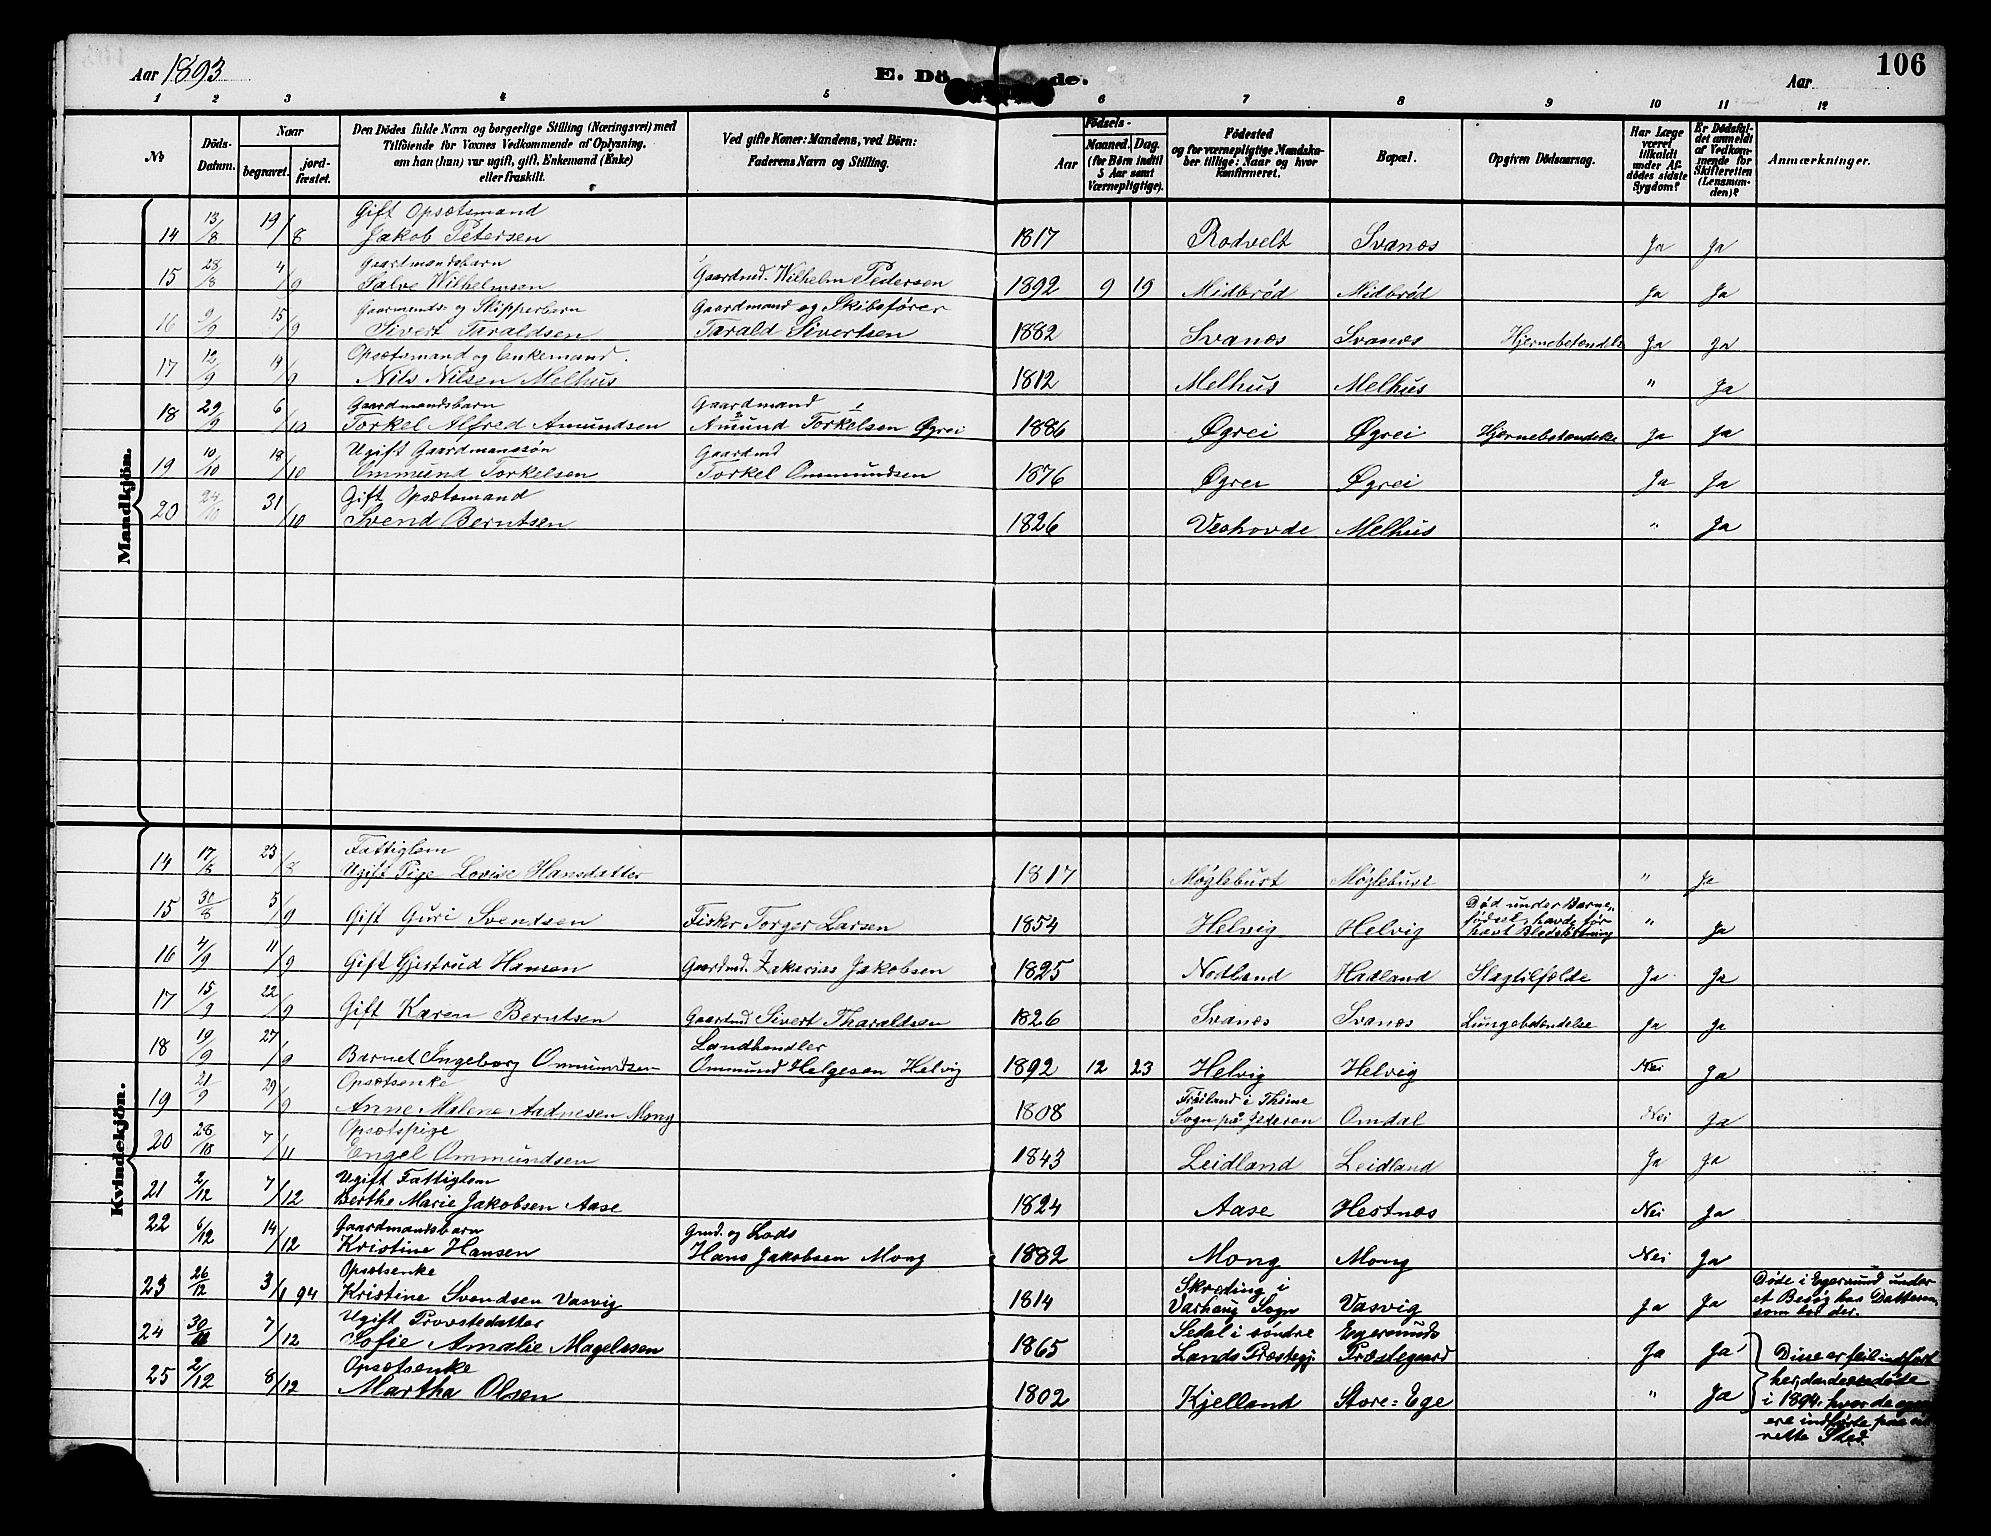 Aar 1893 E. Dö de. Aar 106
1 2 3 4 5 6 7 8 9 10 11 12
№
Döds-Datum.
Naar
begravet.
jord-fæstet.
Den Dödes fulde Navn og borgerlige Stilling (Næringsvei) med
Tilföiende for Voxnes Vedkommende af Oplysning,
om han (hun) var ugift, gift, Enkemand (Enke)
eller fraskilt.
Ved gifte Koner: Mandens, ved Börn:
Faderens Navn og Stilling.
Födsels-
Aar
Maaned. Dag.
(for Börn indtil
5 Aar samt
Værnepligtige).
Födested
og for værnepligtige Mandska-
ber tillige: Naar og hvor
konfirmeret.
Bopæl.
Opgiven Dödsaarsag.
Har Læge
været
tilkaldt
under Af-
dödes sidste
Sygdom?
Er Dödsfal-
det anmeldt
af Vedkom-
mende for
Skifteretten
(Lensman-
den)?
Anmærkninger.
Mandkjön.
Gift Opsætsmand
14 13/8 19/8 Jakob Petersen 1817 Rodvelt Svanæs Ja Ja
Gaardmandsbarn
15 28/8 4/9 Salve Wilhelmsen Gaardmd. Wilhelm Pedersen 1892 9 19 Midbrød Midbrød Ja Ja
Gaarmands og Skipperbarn Gaardmand og Skibsfører
16 9/9 15/9 Sivert Taraldsen Tarald Sivertsen 1882 Svanæs Svanæs Hjernebetændelse Ja Ja
Opsætsmand og Enkemand.
17 12/9 19/9 Nils Nilsen Melhus 1812 Melhus Melhus " Ja
Gaardmandsbarn Gaardmand
18 29/9 6/10 Torkel Alfred Amundsen Amund Torkelsen Øgrei 1886 Øgrei Øgrei Hjernebetændelse Ja Ja
Ugift Gaardmanssøn Gaardmd
19 10/10 18/10 Ommund Torkelsen Torkel Ommundsen 1876 Øgrei Øgrei Ja Ja
Gift Opsætsmand
20 24/10 31/10 Svend Berntsen 1826 Veshovde Melhus " Ja
Kvindekjön.
Fattiglem
14 17/8 23/8 Ugift Pige Lovise Hansdatter 1817 Møglebust Møglebust " Ja
15 31/8 5/9 Gift Guri Svendsen Fisker Torger Larsen 1854 Helvig Helvig Død under Barne-
fødsel, havde før
havt Blodstyrtning " Ja
16 4/9 11/9 Gift Gjertrud Hansen Gaardmd. Zakarias Jakobsen 1825 Nodland Hadland Slagtilfælde Ja Ja
17 15/9 22/9 Gift Karen Berntsen Gaardmd Sivert Tharaldsen 1826 Svanæs Svanæs Lungebetændelse Ja Ja
Landhandler
18 19/9 27/9 Barnet Ingeborg Ommundsen Ommund Helgesen Helvig 1892 12 23 Helvig Helvig Nei Ja
Opsætsenke
19 21/9 29/9 Anne Malene Aadnesen Mong 1808 Frøiland i Thime
Sogn på Jederen Omdal Nei Ja
Opsætspige
20 28/10 7/11 Engel Ommundsen 1843 Leidland Leidland Ja Ja
Ugift Fattiglem
21 2/12 7/12 Berthe Marie Jakobsen Aase 1824 Aase Hestnæs Nei Ja
Gaardmandsbarn Gmd. og Lods
22 6/12 14/12 Kristine Hansen Hans Jakobsen Mong 1882 Mong Mong Nei Ja
Opsætsenke
23 26/12 3/1 94 Kristine Svendsen Vasvig 1814 Skræding i
Varhaug Sogn Vasvig Ja Ja Døde i Egersund under
et Besøg hos Datteren,
som bor der.
Ugift Provstedatter
24 30/11 7/12 Sofie Amalie Magelssen 1865 Sedal i søndre
Lands Præstegj. Egersunds
Præstegaard Ja Ja
Opsætsenke
25 2/12 8/12 Martha Olsen 1802 Kjelland Store-Ege " Ja
Disse er feil indført
her, da de døde
i 1894, hvor de
ere indførte paa
rette Sted.